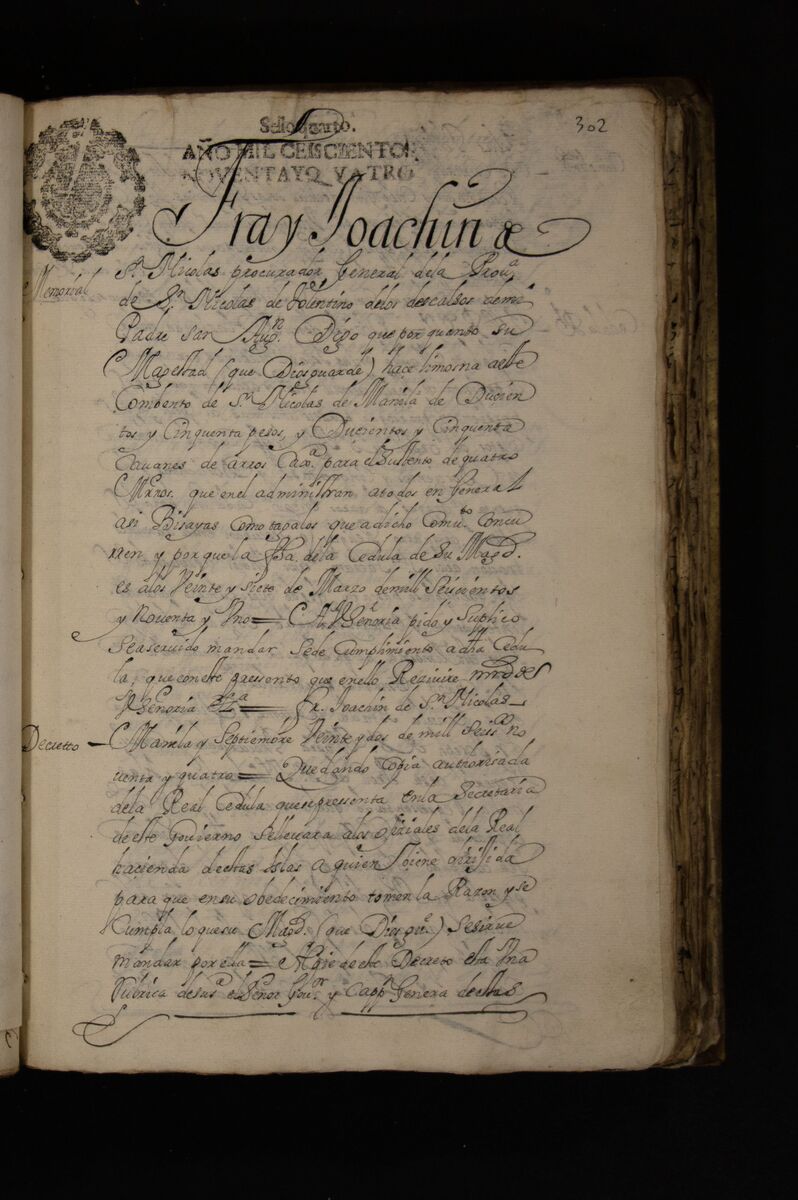 302
Sello quarto.
AÑO MIL CEISCIENTOS
NOVENTA Y Q VATRO
Fray Joachin de
Memorial
Sn. Nicolas procurador General dela Prova.
de Sn. Nicolas de Tolentino delos descalsos demi
Padre san Augn. Digo que por quanto su
Magestad (que Dios guarde) hace limosna aeste
Combento de Sn. Nicolas de Manila de Ducien
tos y Cinquenta pesos, y Ducientos y Cinquenta
Cavanes de arros para el sustento de quatro
Mrnos. que enel administran atodos en General
asi Bisayas Como tagalos que a dicho Comvto. Concu
rren y por que la fha. dela Cedula de Su Magd.
es alos Veinte y siete de Marzo demill Seiscientos
y Noventa y Uno = A Vsa. Señoria pido y Suplico
Sea servido mandar Sede Cumplimiento a dha Cedu
la, que con este pressento que enello Rezivire mrd de
V Señoria etta = Fr. Joachin de Sn. Nicolas
Decretto
Manila y Septiembre Veinte y dos de mill seiscos no
venta y quatro = Quedando Copia authorisada
dela Real Cedula que se pressenta enla Secretaria
deeste Govierno se llevara alos ofiziales dela Real
hacienda destas Islas a quien Viene dirijida
para que ensu obedecimiento tomen la Razon y se
Cumpla lo que su Magd. (que Dios ge.) Se sirve
mandar por ella = Al pie deeste Decreto esta Una
Rubrica desu sa. el Señor Govor. y Cappn. General destas